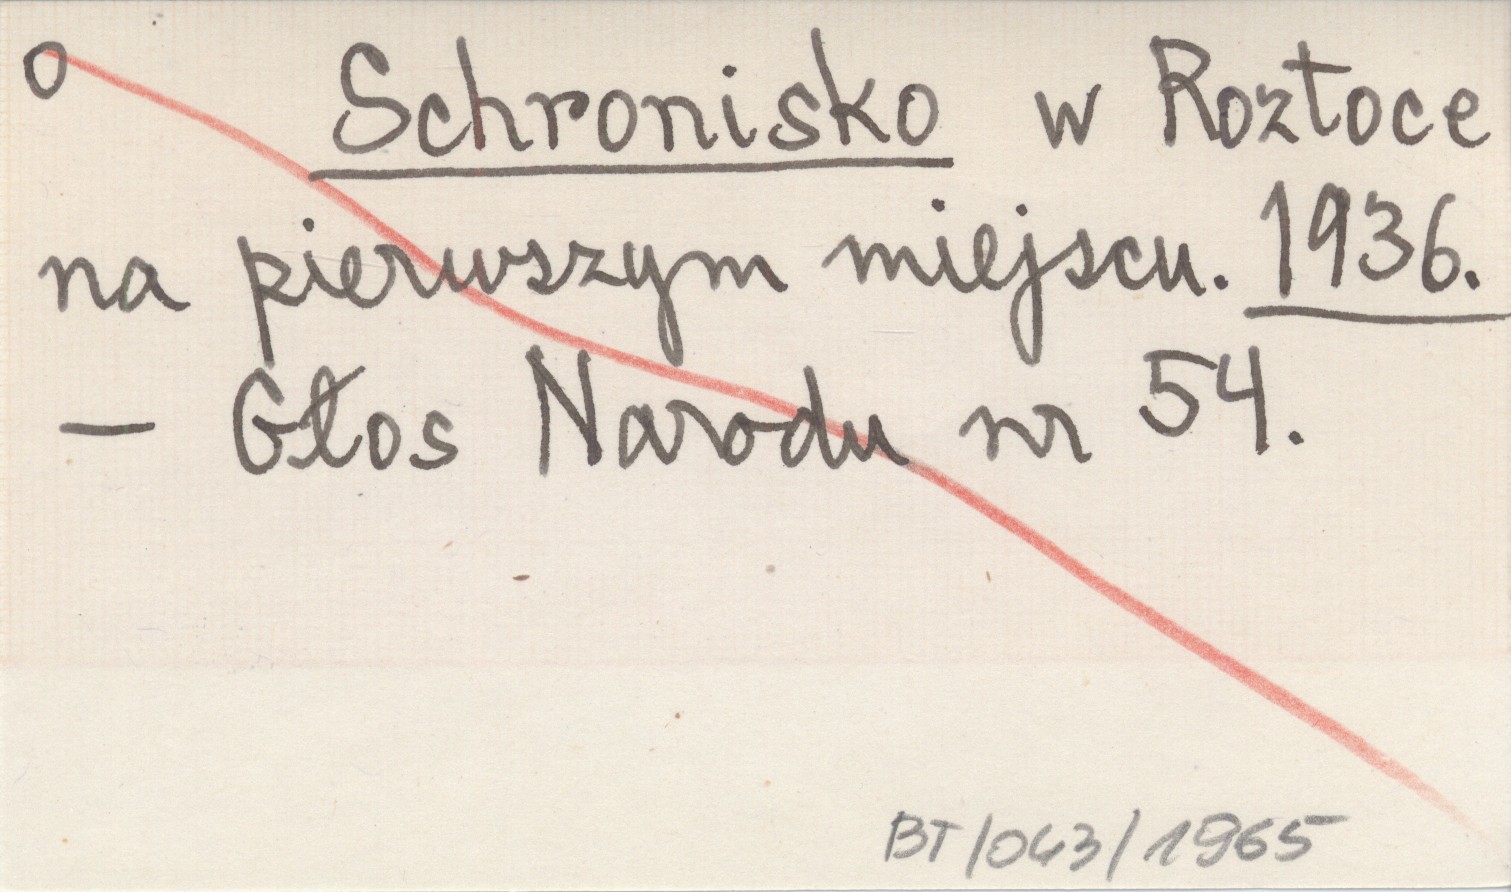 O Schronisko w Roztoce
na pierwszym miejscu. 1936.
— Głos Narodu nr 54.
BT/043/1965